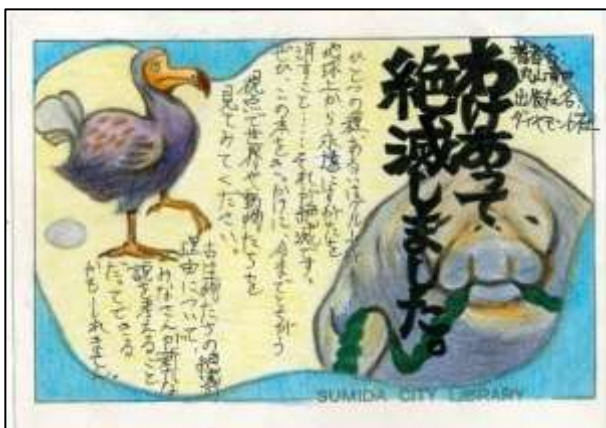 著者名:
丸山貴史
出版社名:
ダイヤモンド社
わけあって
絶滅しました。
ひとつの種、あるいはグループが
地球上から永遠にすがたを
消すこと……それが絶滅です。
ぜひ、この本をきっかけに、今までとちがう
視点で世界や動物たちを
見てみてください。
古生物たちの絶滅
理由について、
みなさんが新たな
説を考えること
だってできる
かもしれません。
SUMIDA CITY LIBRARY